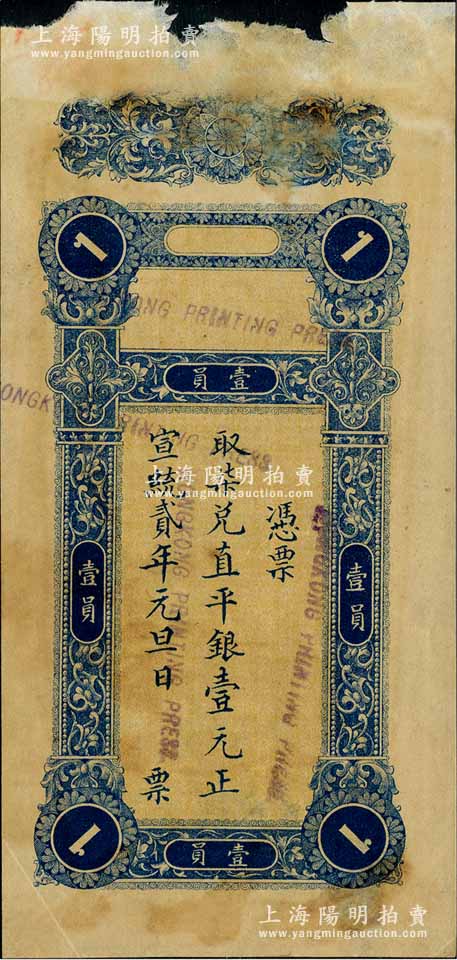 上海陽明拍賣
www.yangmingauction.com
1
1
ONG PRINTING PRE
壹員
上海陽明拍賣
www.yangmingauction.com
憑票
取柒兑直平銀壹元正
宣統貳年元旦日 票
HONGKONG PRINTING PRESS
KONG PRINTING PRESS
壹員
壹員
1
1
壹員
上海陽明拍賣
www.yangmingauction.com